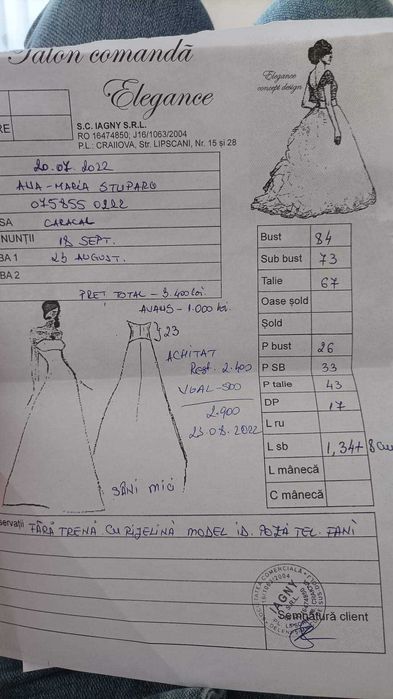 Talon comandă
Elegance
Elegance
concept design
RE
S.C. IAGNY S.R.L.
RO 16474850; J16/1063/2004
P.L.: CRAIOVA, Str. LIPSCANI, Nr. 15 și 28
20.07.2022
ANA-MARIA STUPARU
075855 0222
SA CARACAL
NUNȚII 18 SEPT.
BA 1 25 AUGUST.
BA 2
PREȚ TOTAL - 3.400 lei.
AVANS - 1.000 lei.
23
ACHITAT
Rest. 2.400
VOAL - 500
2.900
23.08.2022
SÂNI MICI
Bust 84
Sub bust 73
Talie 67
Oase șold
Șold
P bust 26
P SB 33
P talie 43
DP 17
L ru
L sb 1,34 + 8 cm
L mânecă
C mânecă
servații FĂRĂ TRENĂ CU RIJELINĂ MODEL ID. POZĂ TEL. FANI
IAGNY
Semnătură client